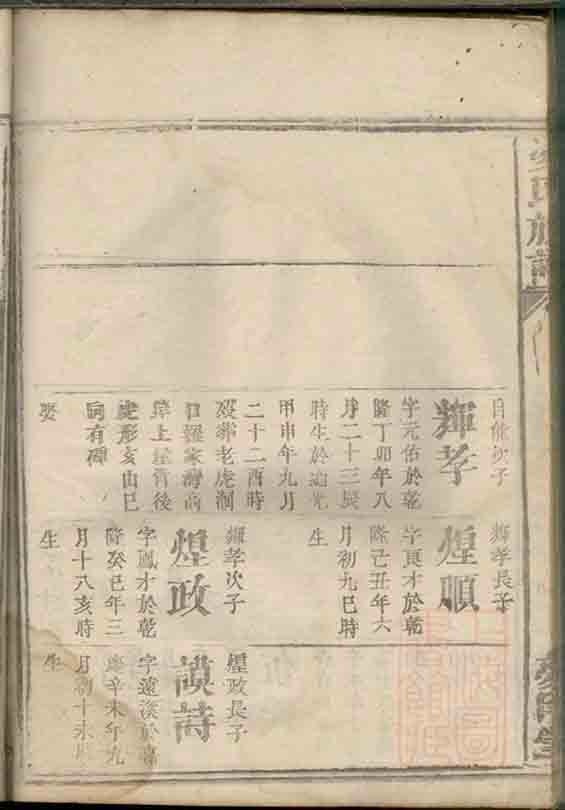 氏族譜
次子
輝孝
字元佑於乾
隆丁卯年八
月二十三辰
時生於道光
甲申年九月
二十二酉時
歿葬老虎洞
口羅家灣高
岸上
虎形亥山巳
向有碑
娶
輝孝長子
煌順
字良才於乾
隆己丑年六
月初九巳時
生
輝孝次子
煌政
字鳳才於乾
隆癸巳年三
月十八亥時
生
煌政長子
謨詩
字遠漢於嘉
慶辛未年九
月初十
生